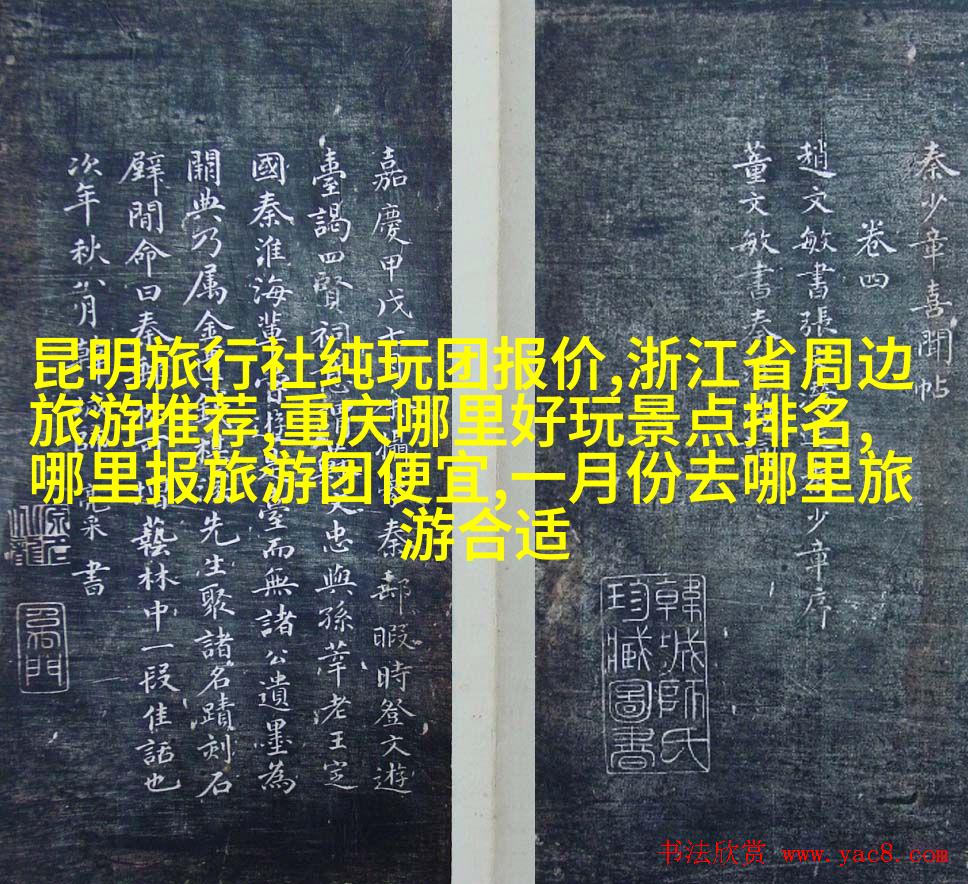 昆明旅行社纯玩团报价,浙江省周边
旅游推荐,重庆哪里好玩景点排名,
哪里报旅游团便宜,一月份去哪里旅
游合适
秦少章喜聞帖
卷四
趙文敏書張 少章序
董文敏書秦
韓城師氏
珍臧圖書
嘉慶甲戌七月 秦郵暇時登文遊
臺謁四賢祠 文忠與孫莘老王定
國秦淮海輩 臺而無諸公遺墨為
闕典乃属金 先生聚諸名蹟刻石
壁間命曰秦郵 藝林中一段佳話也
次年秋八月 亮采書
书法欣赏 www.yac8.com